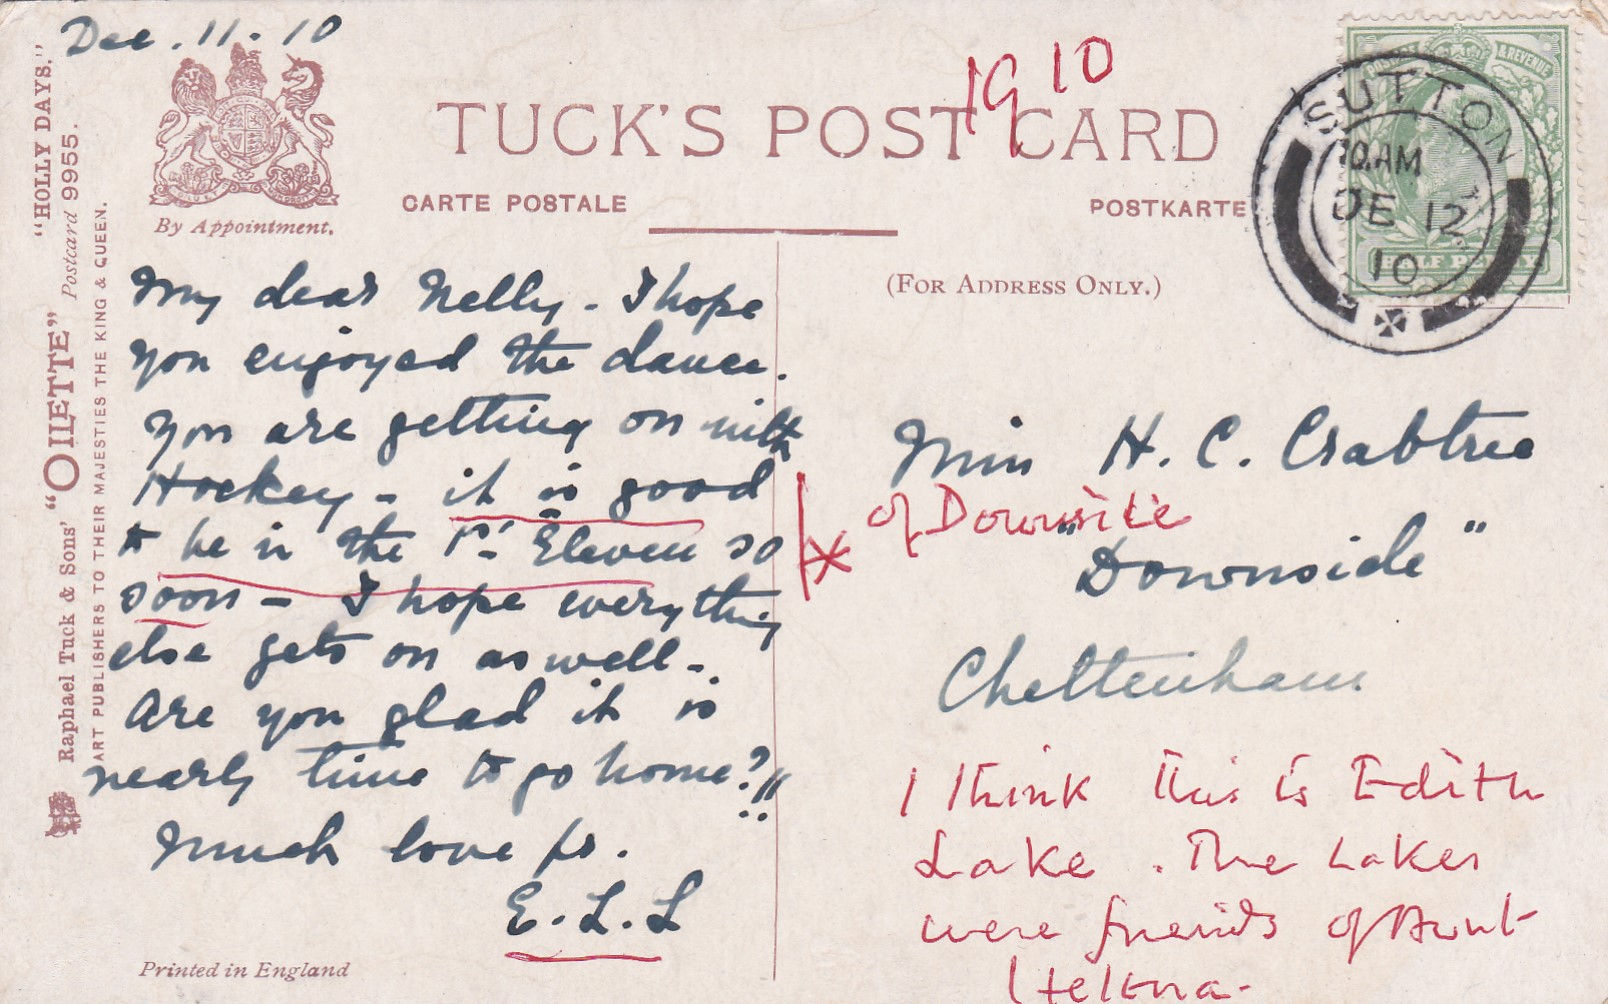 Dec. 11. 10
"HOLLY DAYS."
Postcard 9955.
Raphael Tuck & Sons' "OILETTE"
ART PUBLISHERS TO THEIR MAJESTIES THE KING & QUEEN.
By Appointment.
TUCK'S POST CARD
1910
CARTE POSTALE
POSTKARTE
(FOR ADDRESS ONLY.)
POSTAGE & REVENUE
HALF PENNY
SUTTON
10.AM
DE 12
10
My dear Nelly - I hope
you enjoyed the dance.
You are getting on with
Hockey - it is good
to be in the 1st Eleven so
soon - I hope everything
else gets on as well -
Are you glad it is
nearly time to go home?!!
Much love fr.
E. L. L
Miss H. C. Crabtree
of Downsite
"Downside"
Cheltenham
I think this is Edith
Lake. The Lakes
were friends of Aunt
Helena.
Printed in England